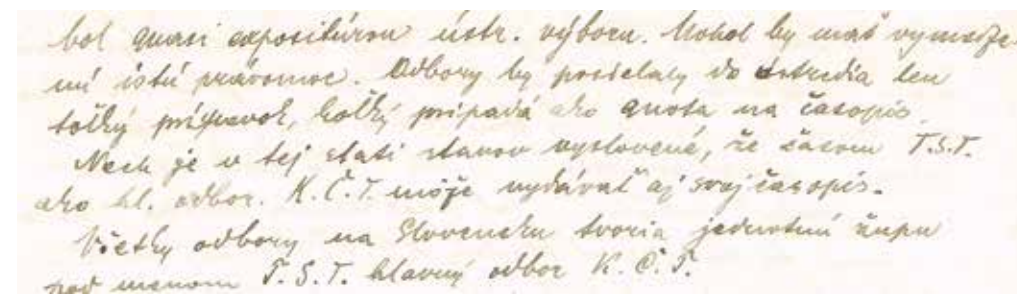 bol quasi expositúrou ústr. výboru. Mohol by mať vymedze-
nú istú právomoc. Odbory by posielaly do ústredia len
toľký príspevok, koľký pripadá ako quota na časopis.
Nech je v tej stati stanov vyslovené, že časom T.S.T.
ako hl. odbor. K.Č.T. môže vydávať aj svoj časopis.
Všetky odbory na Slovensku tvoria jednotnú župu
pod menom T.S.T. hlavný odbor K.Č.T.